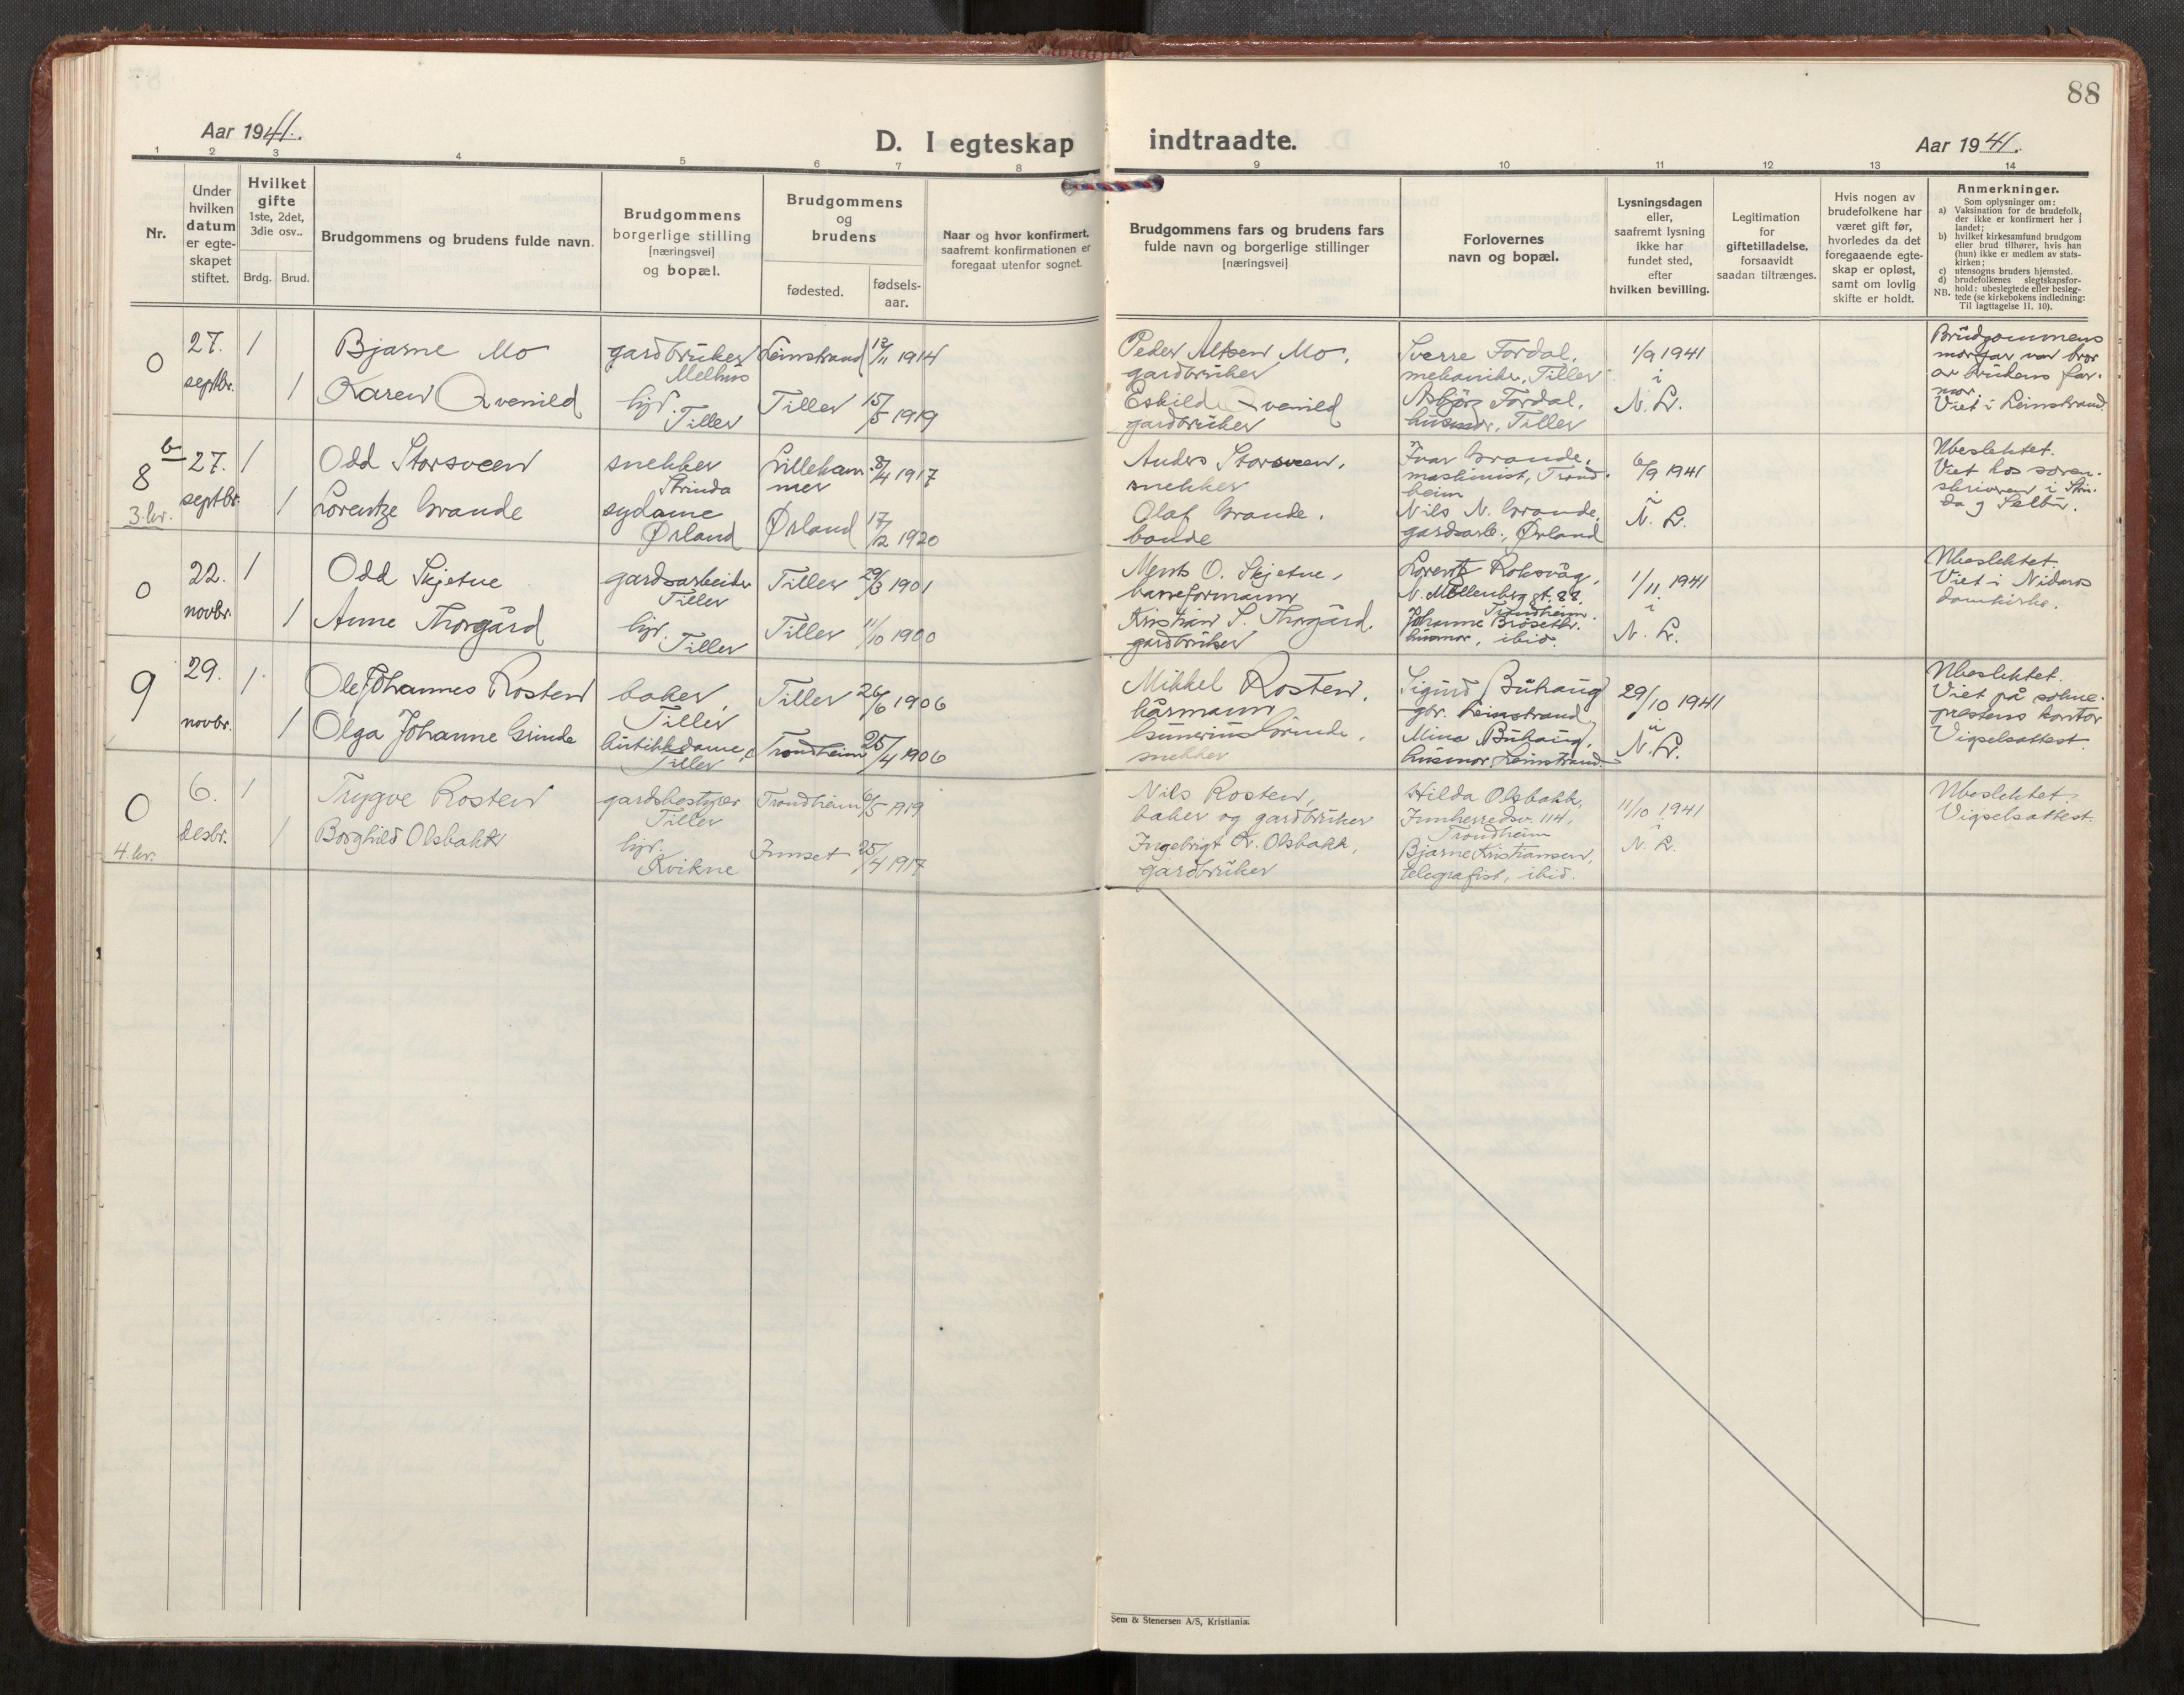 88
Aar 1941.
D. I egteskap indtraadte.
Aar 1941.
1 2 3 4 5 6 7 8 9 10 11 12 13 14
Nr.
Under
hvilken
datum
er egte-
skapet
stiftet.
Hvilket
gifte
1ste, 2det,
3die osv..
Brdg. Brud.
Brudgommens og brudens fulde navn.
Brudgommens
borgerlige stilling
[næringsvei]
og bopæl.
Brudgommens
og
brudens
fødested.
fødsels-
aar.
Naar og hvor konfirmert.
saafremt konfirmationen er
foregaat utenfor sognet.
Brudgommens fars og brudens fars
fulde navn og borgerlige stillinger
[næringsvei]
Forlovernes
navn og bopæl.
Lysningsdagen
eller,
saafremt lysning
ikke har
fundet sted,
efter
hvilken bevilling.
Legitimation
for
giftetilladelse,
forsaavidt
saadan tiltrænges.
Hvis nogen av
brudefolkene har
været gift før,
hvorledes da det
foregaaende egte-
skap er opløst,
samt om lovlig
skifte er holdt.
Anmerkninger.
Som oplysninger om:
a) Vaksination for de brudefolk,
der ikke er konfirmert her i
landet;
b) hvilket kirkesamfund brudgom
eller brud tilhører, hvis han
(hun) ikke er medlem av stats-
kirken;
c) utensogns bruders hjemsted.
d) brudefolkenes slegtskapsfor-
hold: ubeslegtede eller besleg-
NB. tede (se kirkebokens indledning:
Til iagttagelse II. 10).
0
27.
septbr.
1
1
Bjarne Mo
Karen Qvenild
gardbruker
Melhus
hjv.
Tiller
Leinstrand 12/11 1914
Tiller 15/5 1919
Peder Altsen Mo,
gardbruker
Eskild Qvenild
gardbruker
Sverre Fordal,
mekaniker, Tiller
Asbjørg Fordal,
husmor, Tiller
1/9 1941
i
N. L.
Brudgommens
morfar var bror
av brudens far-
mor.
Viet i Leinstrand.
8
3. kv.
27.
septbr.
1
1
Odd Storsveen
Lorentze Grande
snekker
Strinda
sydame
Ørland
Lilleham-
mer
8/4 1917
Ørland 17/12 1920
Anders Storsveen,
snekker
Olaf Grande,
bonde
Ivar Grande,
maskinist, Trond-
heim
Nils N. Grande,
gardsarb., Ørland
6/9 1941
i
N. L.
Ubeslektet.
Viet hos soren-
skriveren i Strin-
da og Selbu.
0
22.
novbr.
1
1
Odd Skjetne
Anne Thorgård
gardsarbeider
Tiller
hjv.
Tiller
Tiller 29/3 1901
Tiller 11/10 1900
Ments O. Skjetne,
baneformann
Kristian S. Thorgård,
gardbruker
Lorentz Roksvåg,
N. Møllenberg gt. 82.
Trondheim
Johanne Brøsetbr.
husmor, ibid.
1/11 1941
i
N. L.
Ubeslektet.
Viet i Nidaros
domkirke.
9
29.
novbr.
1
1
Ole Johannes Rosten
Olga Johanne Grinde
baker,
Tiller
butikkdame,
Tiller
Tiller 26/6 1906
Trondheim 25/4 1906
Mikkel Rosten,
kårmann
Gunerius Grinde,
snekker
Sigurd Buhaug
gbr. Leinstrand
Mina Buhaug,
husmor, Leinstrand
29/10 1941
i
N. L.
Ubeslektet.
Viet på sokne-
prestens kontor
Vigselsattest.
0
4. kv.
6.
desbr.
1
1
Trygve Rosten
Borghild Olsbakk
gardsbestyrer
Tiller
hjv.
Kvikne
Trondheim 6/5 1919
Innset 25/4 1917
Nils Rosten,
baker og gardbruker
Ingebrigt Kr. Olsbakk,
gardbruker
Hilda Olsbakk,
Innherredsv. 114,
Trondheim
Bjarne Kristiansen,
telegrafist, ibid.
11/10 1941
i
N. L.
Ubeslektet.
Vigselsattest.
Sem & Stenersen A/S, Kristiania.